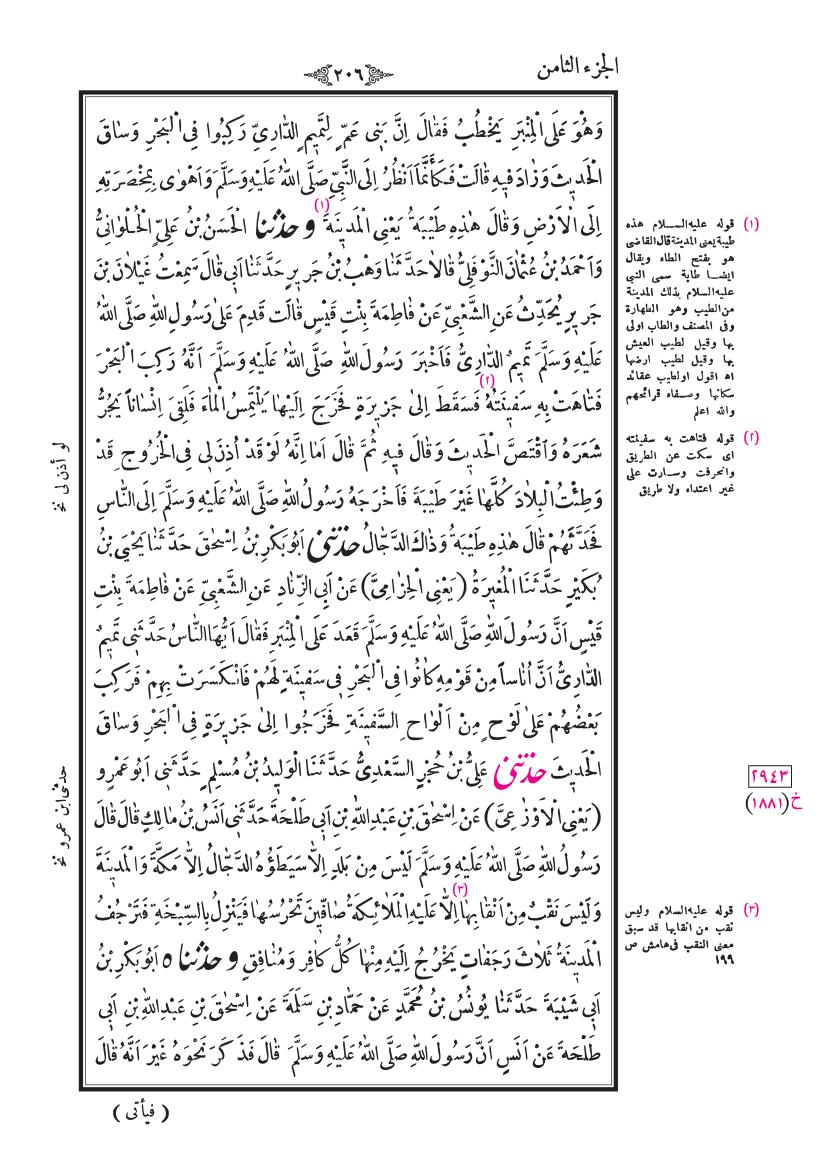 الجزء الثامن
٢٠٦
وَهُوَ عَلَى الْمِنْبَرِ يَخْطُبُ فَقَالَ اِنَّ بَنِى عَمٍّ لِتَمِيمٍ الدَّارِىِّ رَكِبُوا فِى الْبَحْرِ وَسَاقَ
الْحَدِيثَ وَزَادَ فِيهِ قَالَتْ فَكَأَنَّمَا اَنْظُرُ اِلَى النَّبِىِّ صَلَّى اللّٰهُ عَلَيْهِ وَسَلَّمَ وَاَهْوٰى بِمِخْصَرَتِهِ
اِلَى الْاَرْضِ وَقَالَ هٰذِهِ طَيْبَةُ (١) يَعْنِى الْمَدِينَةَ و حَدَّثَنَا الْحَسَنُ بْنُ عَلِىٍّ الْحُلْوَانِىُّ
وَاَحْمَدُ بْنُ عُثْمَانَ النَّوْفَلِىُّ قَالَا حَدَّثَنَا وَهْبُ بْنُ جَرِيرٍ حَدَّثَنَا اَبِى قَالَ سَمِعْتُ غَيْلَانَ بْنَ
جَرِيرٍ يُحَدِّثُ عَنِ الشَّعْبِىِّ عَنْ فَاطِمَةَ بِنْتِ قَيْسٍ قَالَتْ قَدِمَ عَلٰى رَسُولِ اللّٰهِ صَلَّى اللّٰهُ
عَلَيْهِ وَسَلَّمَ تَمِيمٌ الدَّارِىُّ فَاَخْبَرَ رَسُولَ اللّٰهِ صَلَّى اللّٰهُ عَلَيْهِ وَسَلَّمَ اَنَّهُ رَكِبَ الْبَحْرَ
فَتَاهَتْ بِهِ سَفِينَتُهُ (٢) فَسَقَطَ اِلٰى جَزِيرَةٍ فَخَرَجَ اِلَيْهَا يَلْتَمِسُ الْمَاءَ فَلَقِىَ اِنْسَاناً يَجُرُّ
شَعَرَهُ وَاقْتَصَّ الْحَدِيثَ وَقَالَ فِيهِ ثُمَّ قَالَ اَمَا اِنَّهُ لَوْ قَدْ اُذِنَ لِى فِى الْخُرُوجِ قَدْ
وَطِئْتُ الْبِلَادَ كُلَّهَا غَيْرَ طَيْبَةَ فَاَخْرَجَهُ رَسُولُ اللّٰهِ صَلَّى اللّٰهُ عَلَيْهِ وَسَلَّمَ اِلَى النَّاسِ
فَحَدَّثَهُمْ قَالَ هٰذِهِ طَيْبَةُ وَذَاكَ الدَّجَّالُ حَدَّثَنِى اَبُو بَكْرِ بْنُ اِسْحٰقَ حَدَّثَنَا يَحْيَى بْنُ
بُكَيْرٍ حَدَّثَنَا الْمُغِيرَةُ (يَعْنِى الْحِزَامِىَّ) عَنْ اَبِى الزِّنَادِ عَنِ الشَّعْبِىِّ عَنْ فَاطِمَةَ بِنْتِ
قَيْسٍ اَنَّ رَسُولَ اللّٰهِ صَلَّى اللّٰهُ عَلَيْهِ وَسَلَّمَ قَعَدَ عَلَى الْمِنْبَرِ فَقَالَ اَيُّهَا النَّاسُ حَدَّثَنِى تَمِيمٌ
الدَّارِىُّ اَنَّ اُنَاساً مِنْ قَوْمِهِ كَانُوا فِى الْبَحْرِ فِى سَفِينَةٍ لَهُمْ فَانْكَسَرَتْ بِهِمْ فَرَكِبَ
بَعْضُهُمْ عَلٰى لَوْحٍ مِنْ اَلْوَاحِ السَّفِينَةِ فَخَرَجُوا اِلٰى جَزِيرَةٍ فِى الْبَحْرِ وَسَاقَ
الْحَدِيثَ حَدَّثَنِى عَلِىُّ بْنُ حُجْرٍ السَّعْدِىُّ حَدَّثَنَا الْوَلِيدُ بْنُ مُسْلِمٍ حَدَّثَنِى اَبُو عَمْرٍو
(يَعْنِى الْاَوْزَاعِىَّ) عَنْ اِسْحٰقَ بْنِ عَبْدِ اللّٰهِ بْنِ اَبِى طَلْحَةَ حَدَّثَنِى اَنَسُ بْنُ مَالِكٍ قَالَ قَالَ
رَسُولُ اللّٰهِ صَلَّى اللّٰهُ عَلَيْهِ وَسَلَّمَ لَيْسَ مِنْ بَلَدٍ اِلَّا سَيَطَؤُهُ الدَّجَّالُ اِلَّا مَكَّةَ وَالْمَدِينَةَ
وَلَيْسَ نَقْبٌ مِنْ اَنْقَابِهَا (٣) اِلَّا عَلَيْهِ الْمَلَائِكَةُ صَافِّينَ تَحْرُسُهَا فَيَنْزِلُ بِالسَّبَخَةِ فَتَرْجُفُ
الْمَدِينَةُ ثَلَاثَ رَجَفَاتٍ يَخْرُجُ اِلَيْهِ مِنْهَا كُلُّ كَافِرٍ وَمُنَافِقٍ و حَدَّثَنَاهُ اَبُو بَكْرِ بْنُ
اَبِى شَيْبَةَ حَدَّثَنَا يُونُسُ بْنُ مُحَمَّدٍ عَنْ حَمَّادِ بْنِ سَلَمَةَ عَنْ اِسْحٰقَ بْنِ عَبْدِ اللّٰهِ بْنِ اَبِى
طَلْحَةَ عَنْ اَنَسٍ اَنَّ رَسُولَ اللّٰهِ صَلَّى اللّٰهُ عَلَيْهِ وَسَلَّمَ قَالَ فَذَكَرَ نَحْوَهُ غَيْرَ اَنَّهُ قَالَ
( فيأتى )
(١) قوله عليه السلام هذه
طيبة يعنى المدينة قال القاضى
هو بفتح الطاء ويقال
ايضا طابة سمى النبى
عليه السلام بذلك المدينة
من الطيب وهو الطهارة
وفى المصنف والطاب اولى
بها وقيل لطيب العيش
بها وقيل لطيب ارضها
اه اقول اولطيب عقائد
سكانها وصفاء قرائحهم
والله اعلم
(٢) قوله فتاهت به سفينته
اى سكت عن الطريق
وانحرفت وسارت على
غير اعتداء ولا طريق
٢٩٤٣
خ (١٨٨١)
(٣) قوله عليه السلام وليس
نقب من انقابها قد سبق
معنى النقب فى هامش ص
١٩٩
لو أذن لى نخ
حدثنى ابن عمرو نخ